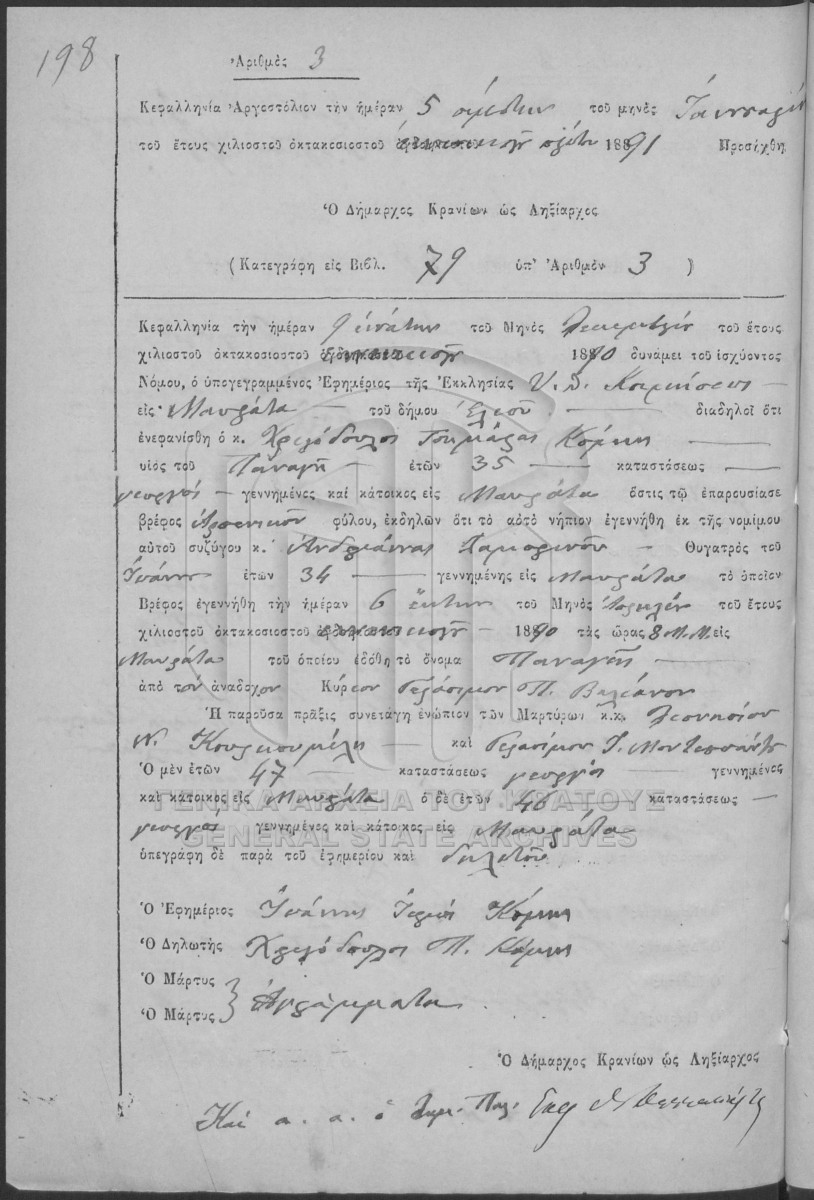 198
Ἀριθμὸς 3
Κεφαλληνία Ἀργοστόλιον τὴν ἡμέραν 5 πέμπτην τοῦ μηνὸς Ἰαννουαρίου
τοῦ ἔτους χιλιοστοῦ ὀκτακοσιοστοῦ 1891 Προσήχθη
Ὁ Δήμαρχος Κρανίων ὡς Ληξίαρχος
(Κατεγράφη εἰς Βιβλ. 79 ὑπ' Ἀριθμὸν 3)
Κεφαλληνία τὴν ἡμέραν 9 ἐνάτην τοῦ Μηνὸς τοῦ ἔτους
χιλιοστοῦ ὀκτακοσιοστοῦ 1890 δυνάμει τοῦ ἰσχύοντος
Νόμου, ὁ ὑπογεγραμμένος Ἐφημέριος τῆς Ἐκκλησίας Κοιμήσεως
εἰς Μαυράτα τοῦ δήμου Ἐλειοῦ διαδηλοῖ ὅτι
ἐνεφανίσθη ὁ κ. Χριστόδουλος Κόμης
υἱὸς τοῦ Παναγῆ ἐτῶν 35 καταστάσεως
γεωργὸς γεννημένος καὶ κάτοικος εἰς Μαυράτα ὅστις τῷ ἐπαρουσίασε
βρέφος ἀρσενικοῦ φύλου, ἐκδηλῶν ὅτι τὸ αὐτὸ νήπιον ἐγεννήθη ἐκ τῆς νομίμου
αὐτοῦ συζύγου κ. Ἀνδριάννας Θυγατρὸς τοῦ
Ἰωάννου ἐτῶν 34 γεννημένης εἰς Μαυράτα τὸ ὁποῖον
Βρέφος ἐγεννήθη τὴν ἡμέραν 6 ἕκτην τοῦ Μηνὸς Ἀπριλίου τοῦ ἔτους
χιλιοστοῦ ὀκτακοσιοστοῦ 1890 τὰς ὥρας 8 Μ.Μ. εἰς
Μαυράτα τοῦ ὁποίου ἐδόθη τὸ ὄνομα Παναγῆς
ἀπὸ τὸν ἀνάδοχον Κύριον Γεράσιμον Π. Βαλιάνον
Ἡ παροῦσα πρᾶξις συνετάγη ἐνώπιον τῶν Μαρτύρων κ.κ. Διονησίου
Ν. Κουρκουμέλη καὶ Γερασίμου
Ὁ μὲν ἐτῶν 47 καταστάσεως γεωργὸς γεννημένος
καὶ κάτοικος εἰς Μαυράτα ὁ δὲ ἐτῶν 46 καταστάσεως
γεωργὸς γεννημένος καὶ κάτοικος εἰς Μαυράτα
ὑπεγράφη δὲ παρὰ τοῦ ἐφημερίου καὶ δηλωτοῦ
Ὁ Ἐφημέριος Ἰωάννης Ἱερεὺς Κόμης
Ὁ Δηλωτὴς Χριστόδουλος Π. Κόμης
Ὁ Μάρτυς
Ὁ Μάρτυς Ἀγράμματοι
Ὁ Δήμαρχος Κρανίων ὡς Ληξίαρχος
ΓΕΝΙΚΑ ΑΡΧΕΙΑ ΤΟΥ ΚΡΑΤΟΥΣ
GENERAL STATE ARCHIVES